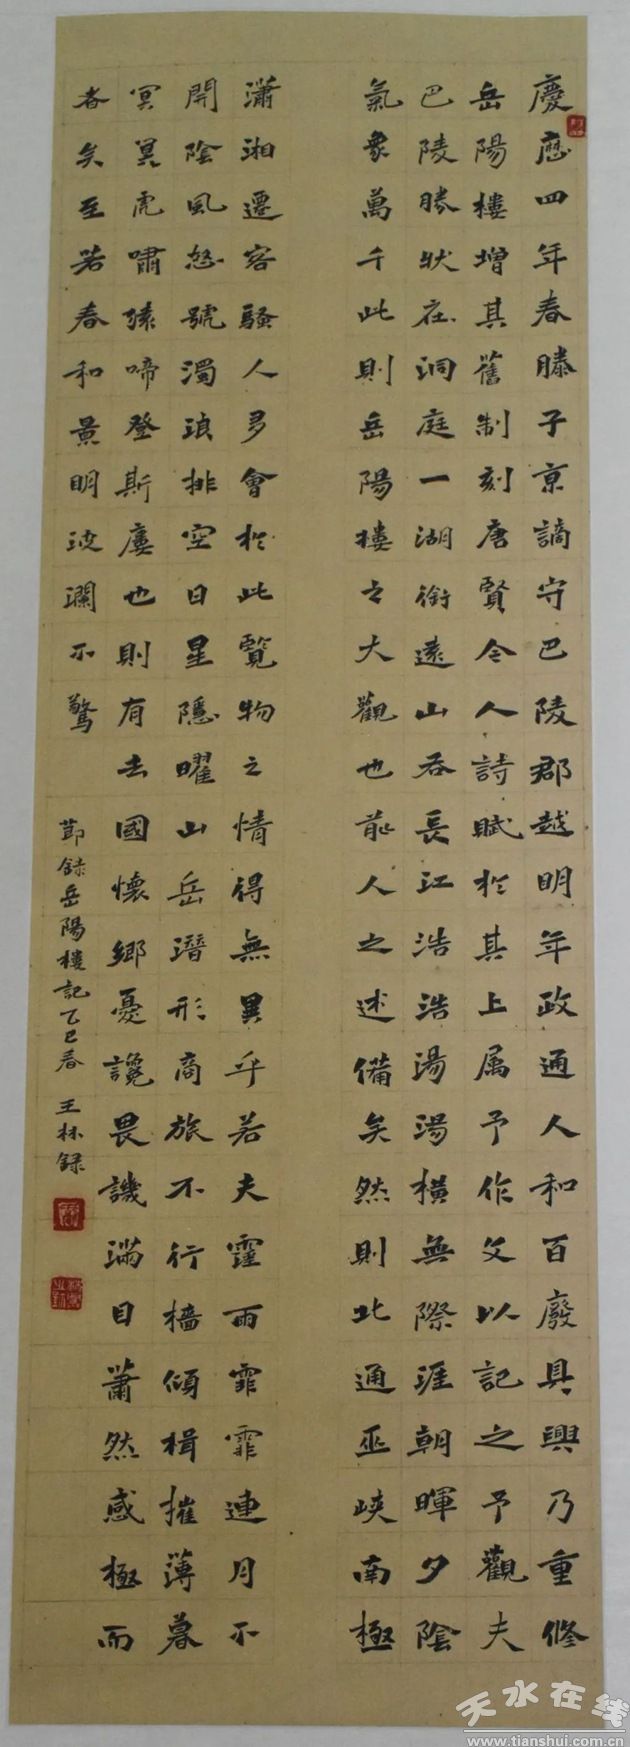 慶歷四年春滕子京謫守巴陵郡越明年政通人和百廢具興乃重修
岳陽樓增其舊制刻唐賢今人詩賦於其上属予作文以記之予觀夫
巴陵勝狀在洞庭一湖銜遠山吞長江浩浩湯湯橫無際涯朝暉夕陰
氣象萬千此則岳陽樓之大觀也前人之述備矣然則北通巫峽南極
瀟湘遷客騷人多會於此覽物之情得無異乎若夫霪雨霏霏連月不
開陰風怒號濁浪排空日星隱曜山岳潛形商旅不行檣傾楫摧薄暮
冥冥虎嘯猿啼登斯樓也則有去國懷鄉憂讒畏譏滿目蕭然感極而
者矣至若春和景明波瀾不驚
節録岳陽樓記乙巳春 王林録
天水在线
www.tianshui.com.cn